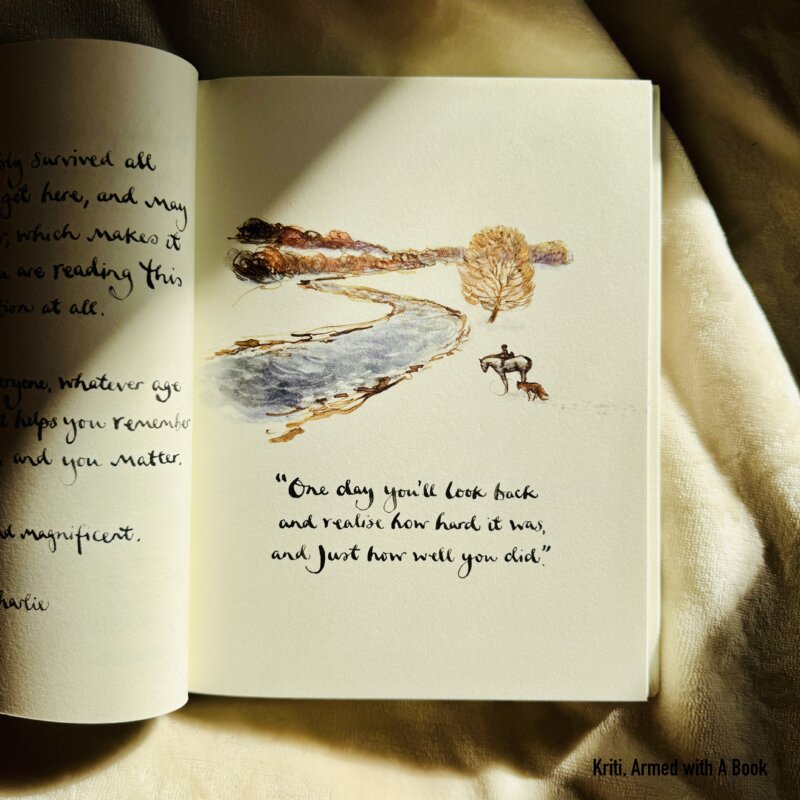 survived all
get here, and May
which makes it
are reading This
at all.
whatever age
helps you remember
and you Matter.
magnificent.
“One day you'll look back
and realise how hard it was,
and Just how well you did”.
Kriti. Armed with A Book